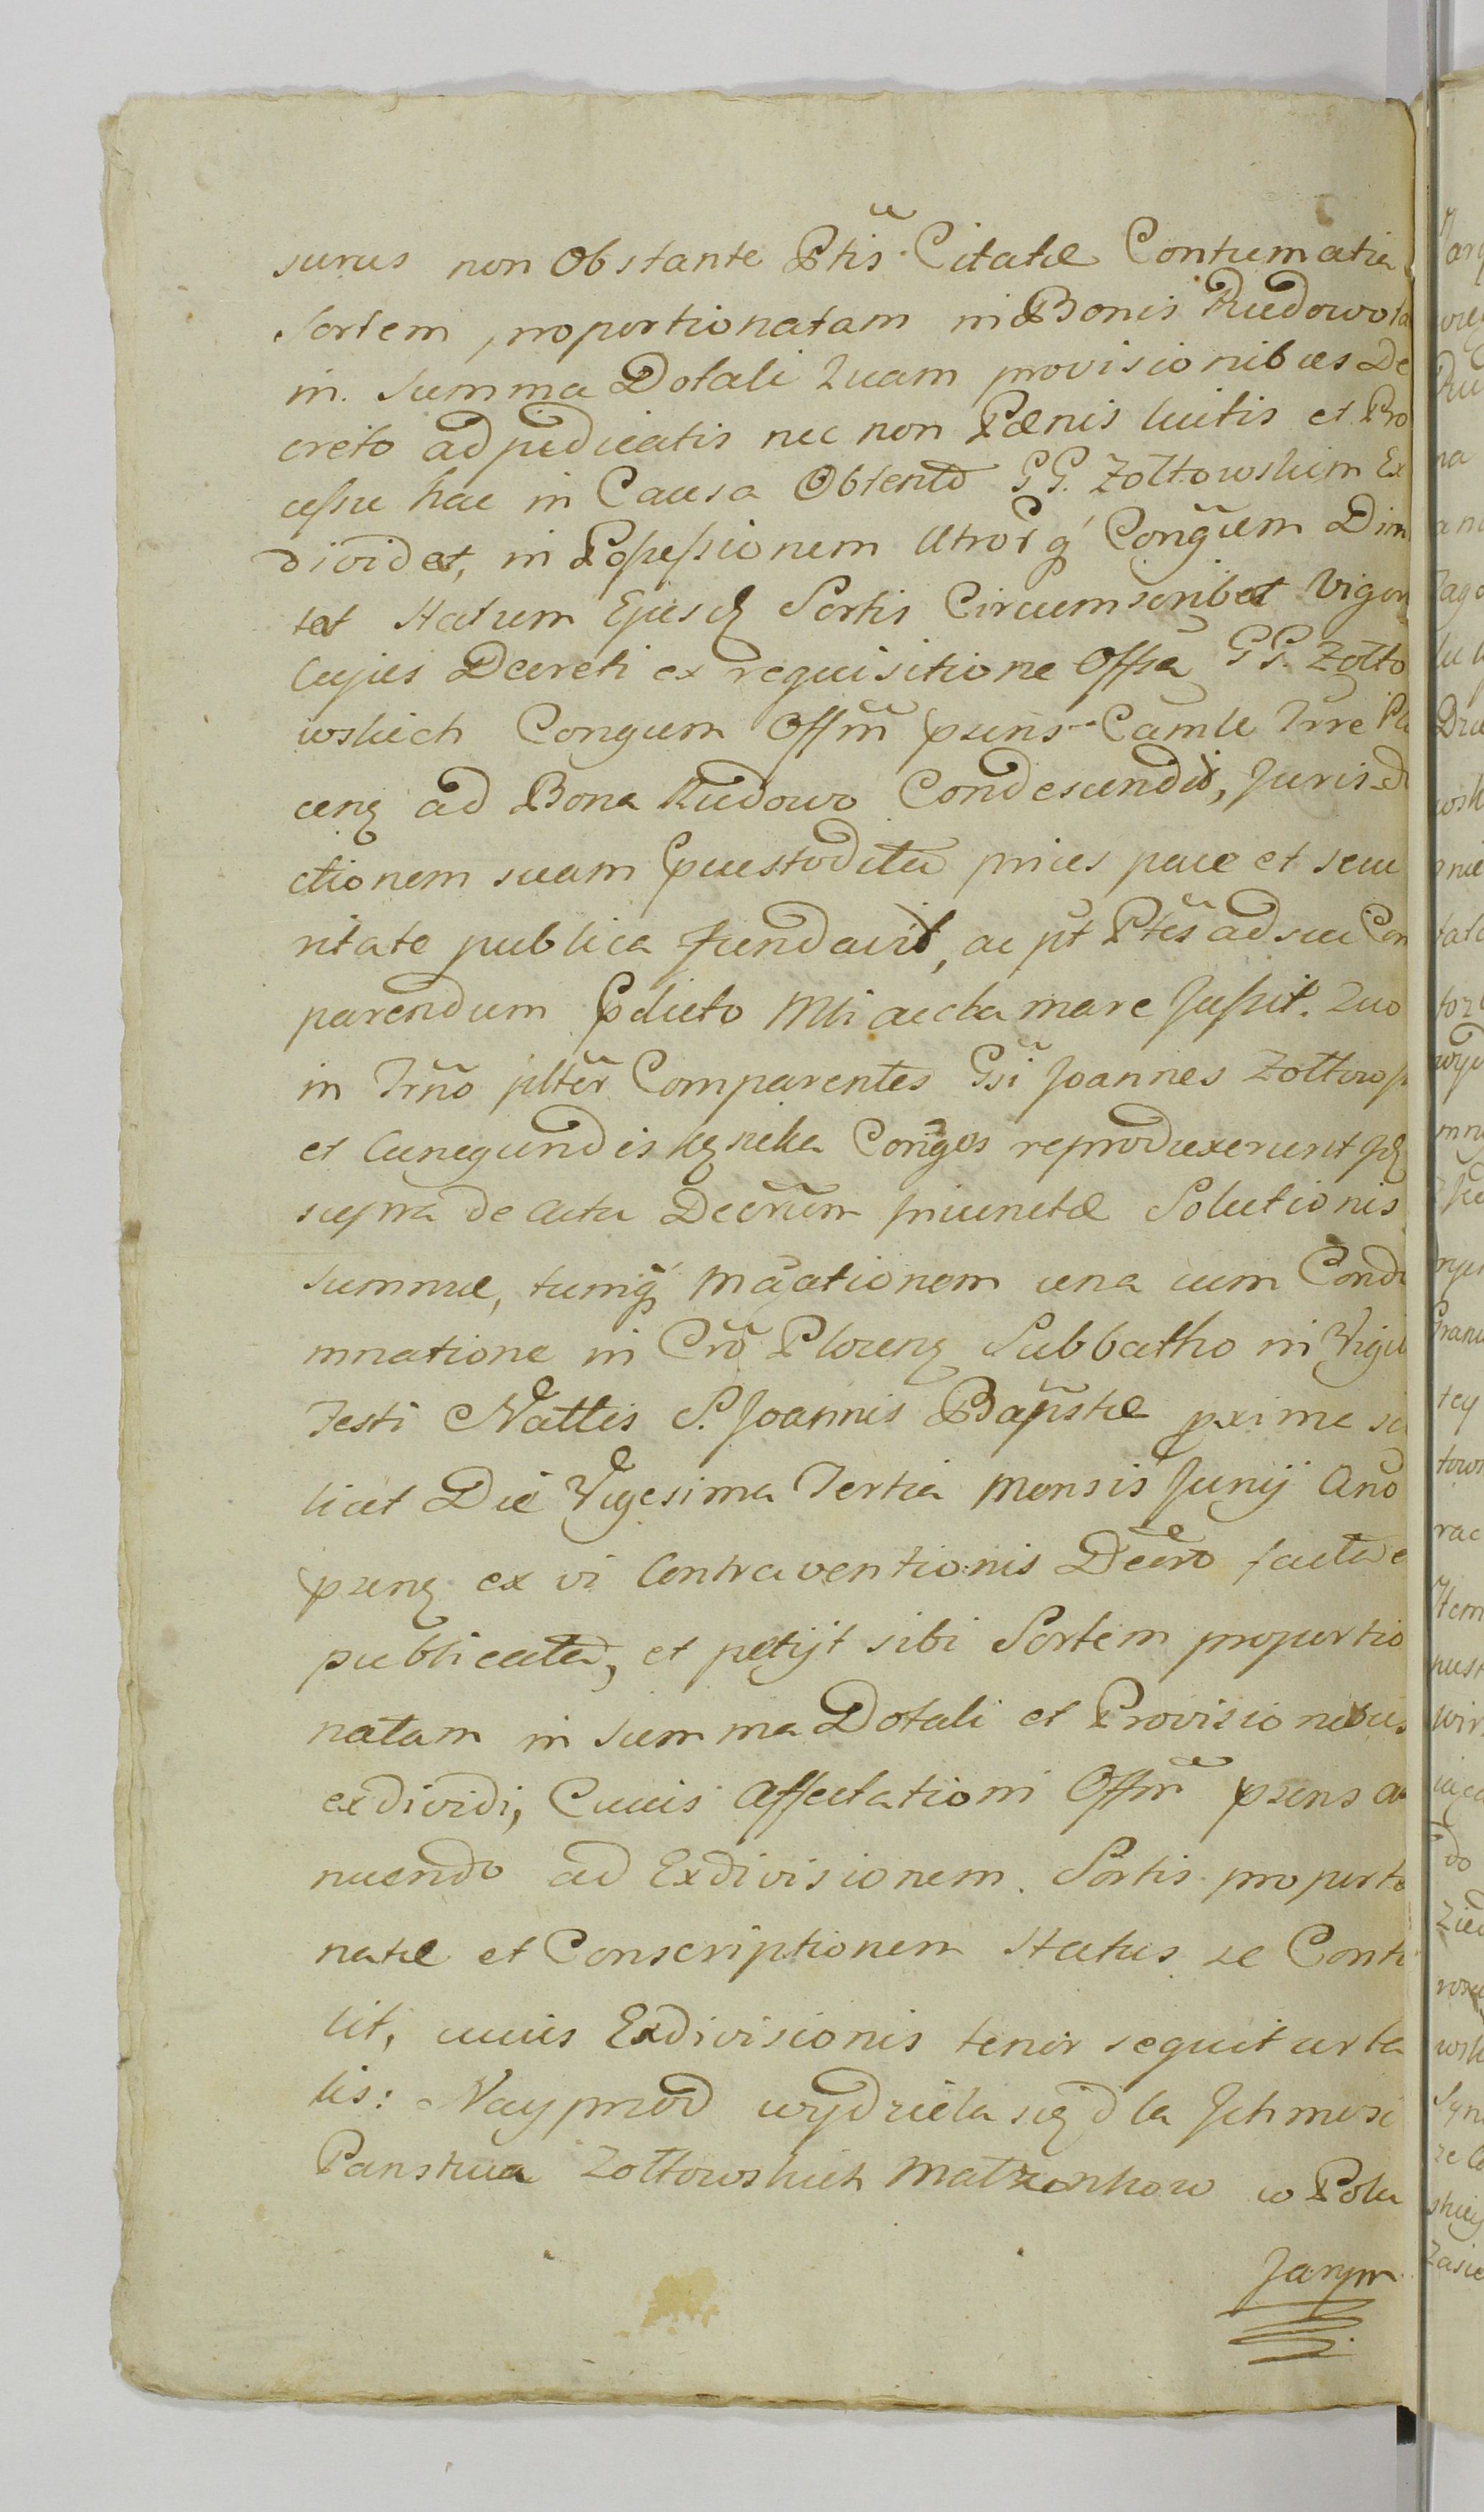 surus non Obstante Ptis Citatæ Contumatia
Sortem proportionatam in Bonis Rudowo ta
in Summa Dotali quam provisionibus De
creto adjudicatis nec non Pænis luitis et Pro
cessu hac in Causa Obtento GG. Zołtowskim Ex
dividet, in Possessionem Utrorq Congum Dim
tet Statum Ejusq Sortis Circumscribet Vigor
Cujus Decreti ex requisitione Offsa GG. Zołto
wskich Congum Offm psens Camle Trre Plo
cens ad Bona Rudowo Condescendit, Jurisdi
ctionem suam custodita prius pace et secu
ritate publica fundavit, ac pt Ptes ad sui Com
parendum edicto Mli acclamare Jussit. Quo
in Trno plter Comparentes Gsi Joannes Zołtows
et Cunegundis Conges reproduxerunt
supra de actu Decrum Solutionis
summæ, tumq unacum Conde
mnatione in Cro Plocens Sabbatho in Vigil
Festi Nattis S. Joannis Baptstæ pxime sci
licet Die Vigesima Tertia Mensis Junij Ano
psens ex vi Contraventionis Decro facta e
publicata, et petijt sibi Sortem proportio
natam in Summa Dotali et Provisionibus
exdividi, Cuius Affectationi Offm psens an
nuendo ad Exdivisionem Sortis proportio
natæ et Conscriptionem Status se Contu
lit, cuius Exdivisionis tenor sequitur ta
lis: Nayprzod wydziela się dla Jchmosc
Panstwa Zołtowskich Małzonkow w Polu
Jarym